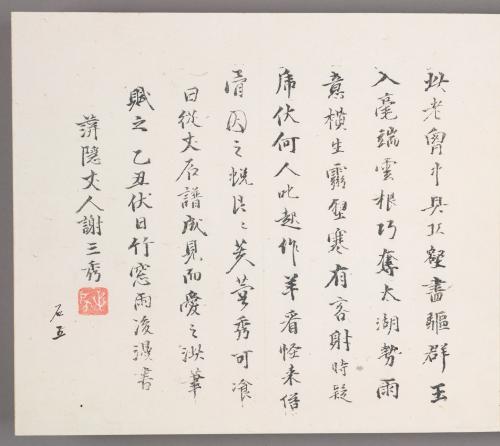 此老胸中具丘壑畫驅群玉
入毫端雲根巧奪太湖勢雨
意橫生靈壁寒有客射時疑
席伏何人叱起作羊看怪來倍
有因之悅㠯〻芙蓉秀可飡
日從丈石譜成見而愛之洪筆
賦之乙丑伏日竹窓雨後漫書
萍隱丈人謝三秀
石五